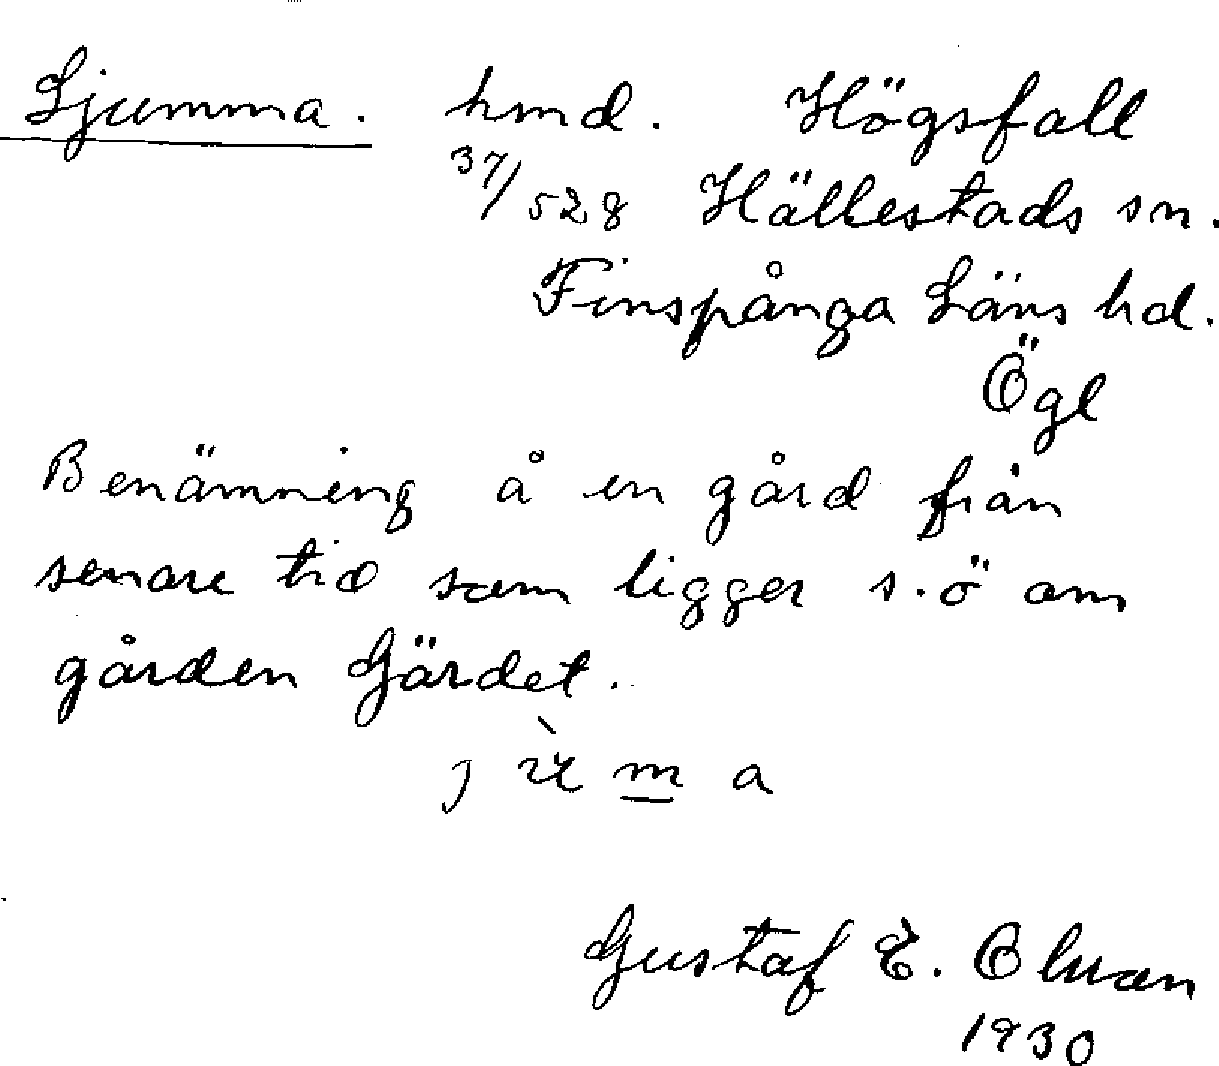 Ljumma. hmd. Högsfall
37/528 Hällestads sn.
Finspånga Läns hd.
Ögl
Benämning å en gård från
senare tid som ligger s.ö om
gården Gärdet.
j ù m a
Gustaf E.
1930